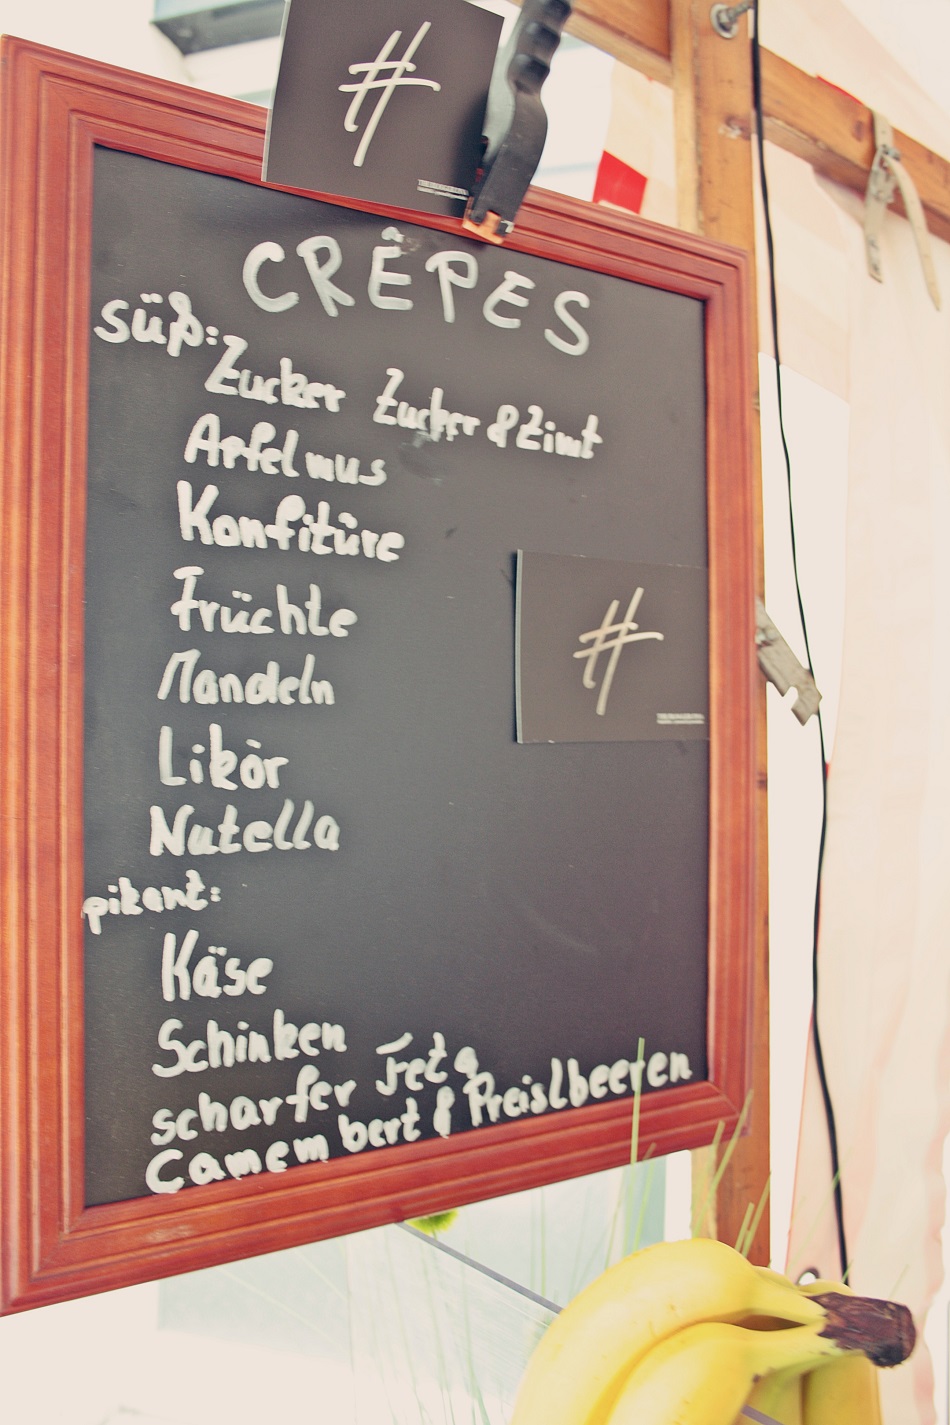 #
CRÊPES
süß:
Zucker Zucker & Zimt
Apfelmus
Konfitüre
Früchte
#
Mandeln
Likör
Nutella
pikant:
Käse
Schinken
scharfer Feta
Camembert & Preislbeeren